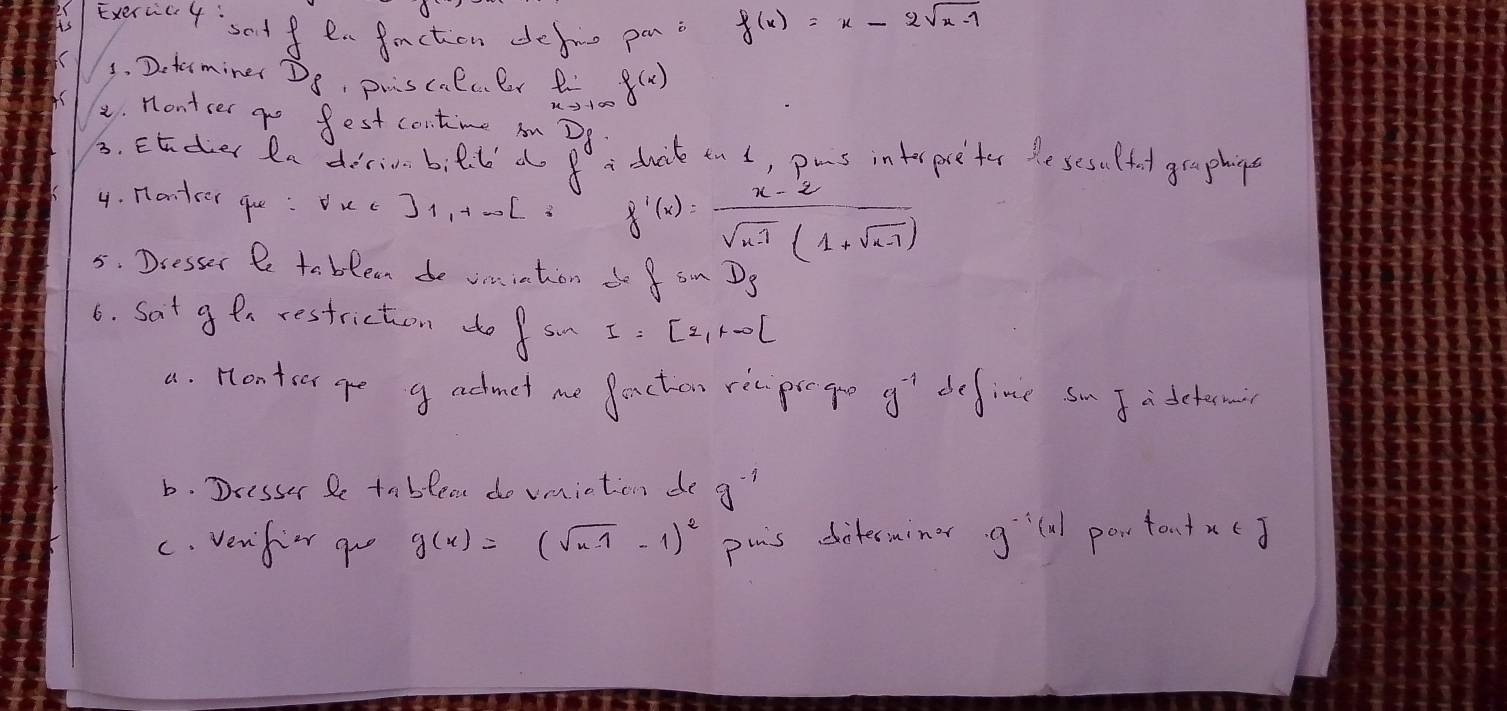 Exercice 4:
soit f la fonction définie par : f(x) = x - 2√(x-1)
1. Determiner Df, puis calculer lim f(x)
x→+∞
2. Montrer que f est continue sur Df.
3. Etudier la dérivabilité de f à droite en 1, puis interpréter le resultat graphique
4. Montrer que : ∀x ∈ ]1,+∞[ : f'(x) = (x-2)/(√(x-1) (1+√(x-1)))
5. Dresser le tableau de variation de f sur Df
6. Soit g la restriction de f sur I = [2,+∞[
a. Montrer que g admet une fonction réciproque g⁻¹ definie sur J à determiner
b. Dresser le tableau de variation de g⁻¹
c. Verifier que g(x) = (√(x-1) - 1)² puis déterminer g⁻¹(x) pour tout x ∈ J